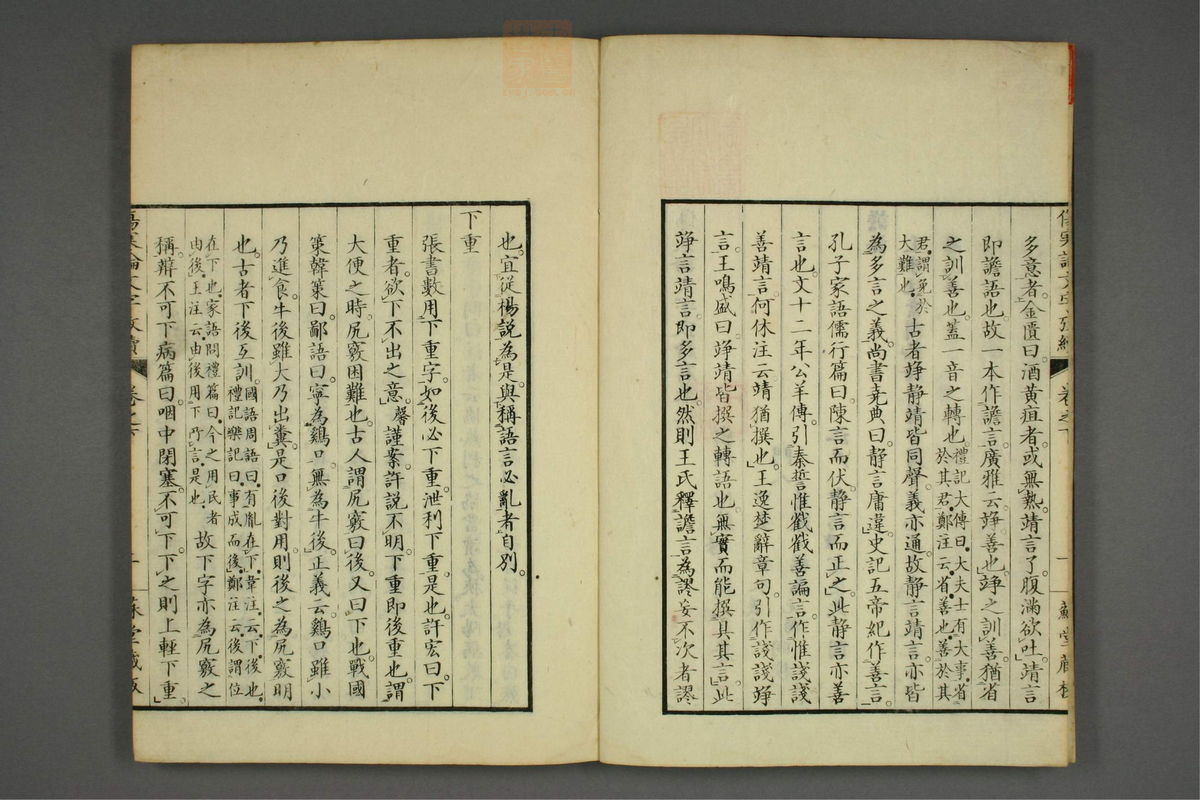 多意者。金匱曰。酒黃疸者。或無熱。靖言了。腹滿欲吐。靖言
即譫語也。故一本作譫言。廣雅云。竫善也。竫之訓善。猶省
之訓善也。蓋一音之轉也。禮記大傳曰。大夫士有大事。省
於其君。鄭注云。省善也。善於其
君。謂免於
大難也。古者竫静靖皆同聲。義亦通。故静言靖言。亦皆
為多言之義。尚書堯典曰。静言庸違。史記五帝紀作善言。
孔子家語儒行篇曰。陳言而伏。静言而正之。此静言亦善
言也。文十二年公羊傳。引秦誓惟截截善諞言。作惟諓諓
善靖言。何休注云。靖猶撰也。王逸楚辭章句。引作諓諓竫
言。王鳴盛曰。竫靖皆撰之轉語也。無實而能撰具其言。此
竫言靖言。即多言也。然則王氏釋譫言。為謬妄不次者謬
卷之下
一
也。宜從楊説為是。與稱語言必亂者自別。
下重
張書數用下重字。如後必下重。泄利下重是也。許宏曰。下
重者。欲下不出之意。馨謹案。許説不明。下重即後重也。謂
大便之時。尻竅困難也。古人謂尻竅曰後。又曰下也。戰國
策韓策曰。鄙語曰。寧為鷄口。無為牛後。正義云。鷄口雖小
乃進食。牛後雖大乃出糞。是口後對用。則後之為尻竅明
也。古者下後互訓。國語周語曰。有胤在下。韋注云。下後也。
禮記樂記曰。事成而後。鄭注云。後謂位
在下也。家語問禮篇曰。今之用民者
由後。王注云。由後用下所言是也。故下字亦為尻竅之
稱。辯不可下病篇曰。咽中閉塞。不可下。下之則上輕下重。